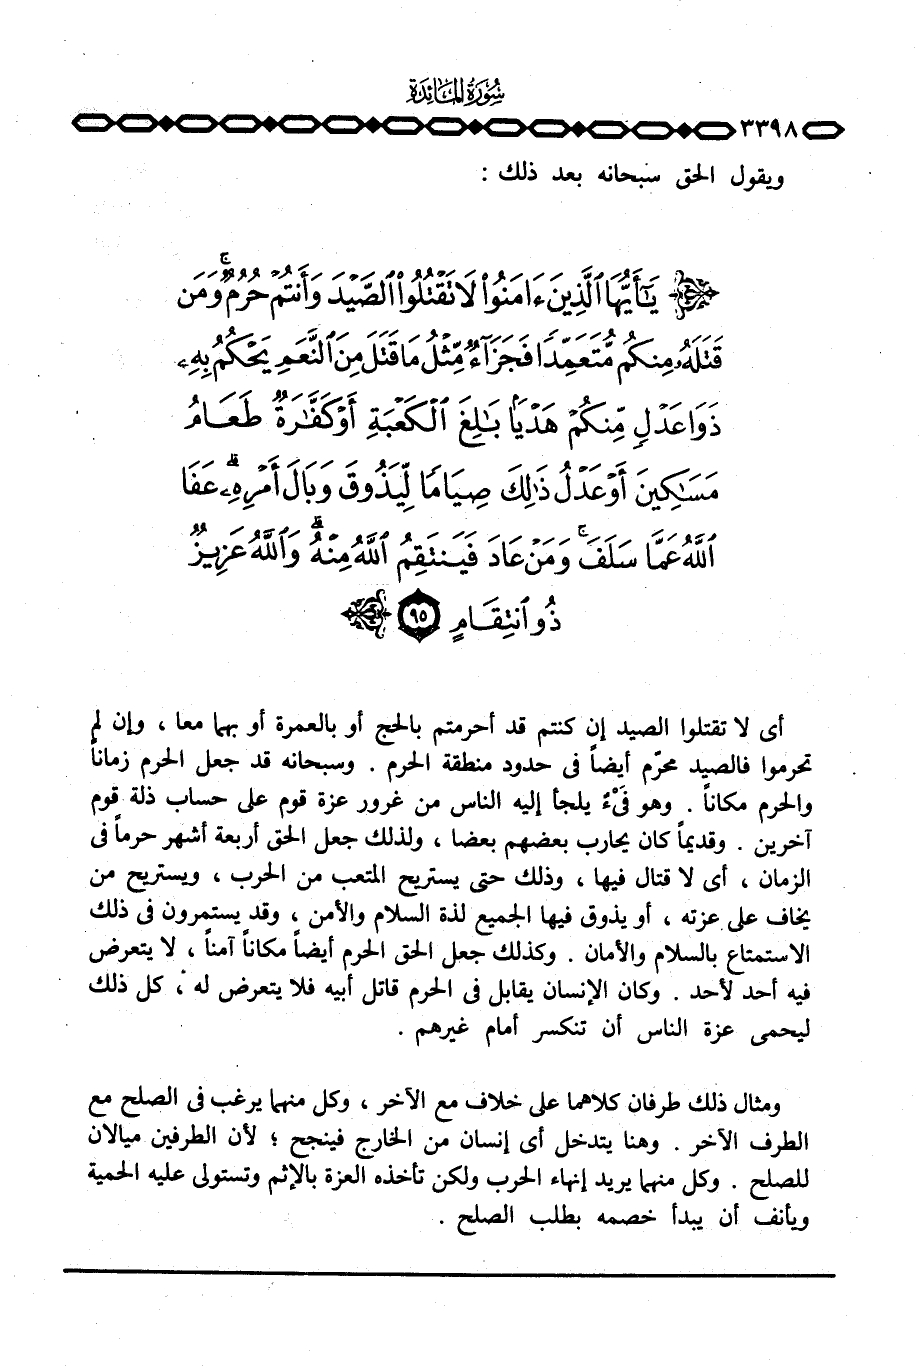 سُورَةُ المَائِدَة
٣٣٩٨
ويقول الحق سبحانه بعد ذلك :
يَٰٓأَيُّهَا ٱلَّذِينَ ءَامَنُواْ لَا تَقْتُلُواْ ٱلصَّيْدَ وَأَنتُمْ حُرُمٌ ۚ وَمَن
قَتَلَهُۥ مِنكُم مُّتَعَمِّدًا فَجَزَآءٌ مِّثْلُ مَا قَتَلَ مِنَ ٱلنَّعَمِ يَحْكُمُ بِهِۦ
ذَوَا عَدْلٍ مِّنكُمْ هَدْيًۢا بَٰلِغَ ٱلْكَعْبَةِ أَوْ كَفَّٰرَةٌ طَعَامُ
مَسَٰكِينَ أَوْ عَدْلُ ذَٰلِكَ صِيَامًا لِّيَذُوقَ وَبَالَ أَمْرِهِۦ ۗ عَفَا
ٱللَّهُ عَمَّا سَلَفَ ۚ وَمَنْ عَادَ فَيَنتَقِمُ ٱللَّهُ مِنْهُ ۗ وَٱللَّهُ عَزِيزٌ
ذُو ٱنتِقَامٍ ٩٥
أى لا تقتلوا الصيد إن كنتم قد أحرمتم بالحج أو بالعمرة أو بهما معا ، وإن لم
تحرموا فالصيد محرّم أيضاً فى حدود منطقة الحرم . وسبحانه قد جعل الحرم زماناً
والحرم مكاناً . وهو فَىْءٌ يلجأ إليه الناس من غرور عزة قوم على حساب ذلة قوم
آخرين . وقديماً كان يحارب بعضهم بعضا ، ولذلك جعل الحق أربعة أشهر حرماً فى
الزمان ، أى لا قتال فيها ، وذلك حتى يستريح المتعب من الحرب ، ويستريح من
يخاف على عزته ، أو يذوق فيها الجميع لذة السلام والأمن ، وقد يستمرون فى ذلك
الاستمتاع بالسلام والأمان . وكذلك جعل الحق الحرم أيضاً مكاناً آمناً ، لا يتعرض
فيه أحد لأحد . وكان الإنسان يقابل فى الحرم قاتل أبيه فلا يتعرض له ، كل ذلك
ليحمى عزة الناس أن تنكسر أمام غيرهم .
ومثال ذلك طرفان كلاهما على خلاف مع الآخر ، وكل منهما يرغب فى الصلح مع
الطرف الآخر . وهنا يتدخل أى إنسان من الخارج فينجح ؛ لأن الطرفين ميالان
للصلح . وكل منهما يريد إنهاء الحرب ولكن تأخذه العزة بالإثم وتستولى عليه الحمية
ويأنف أن يبدأ خصمه بطلب الصلح .